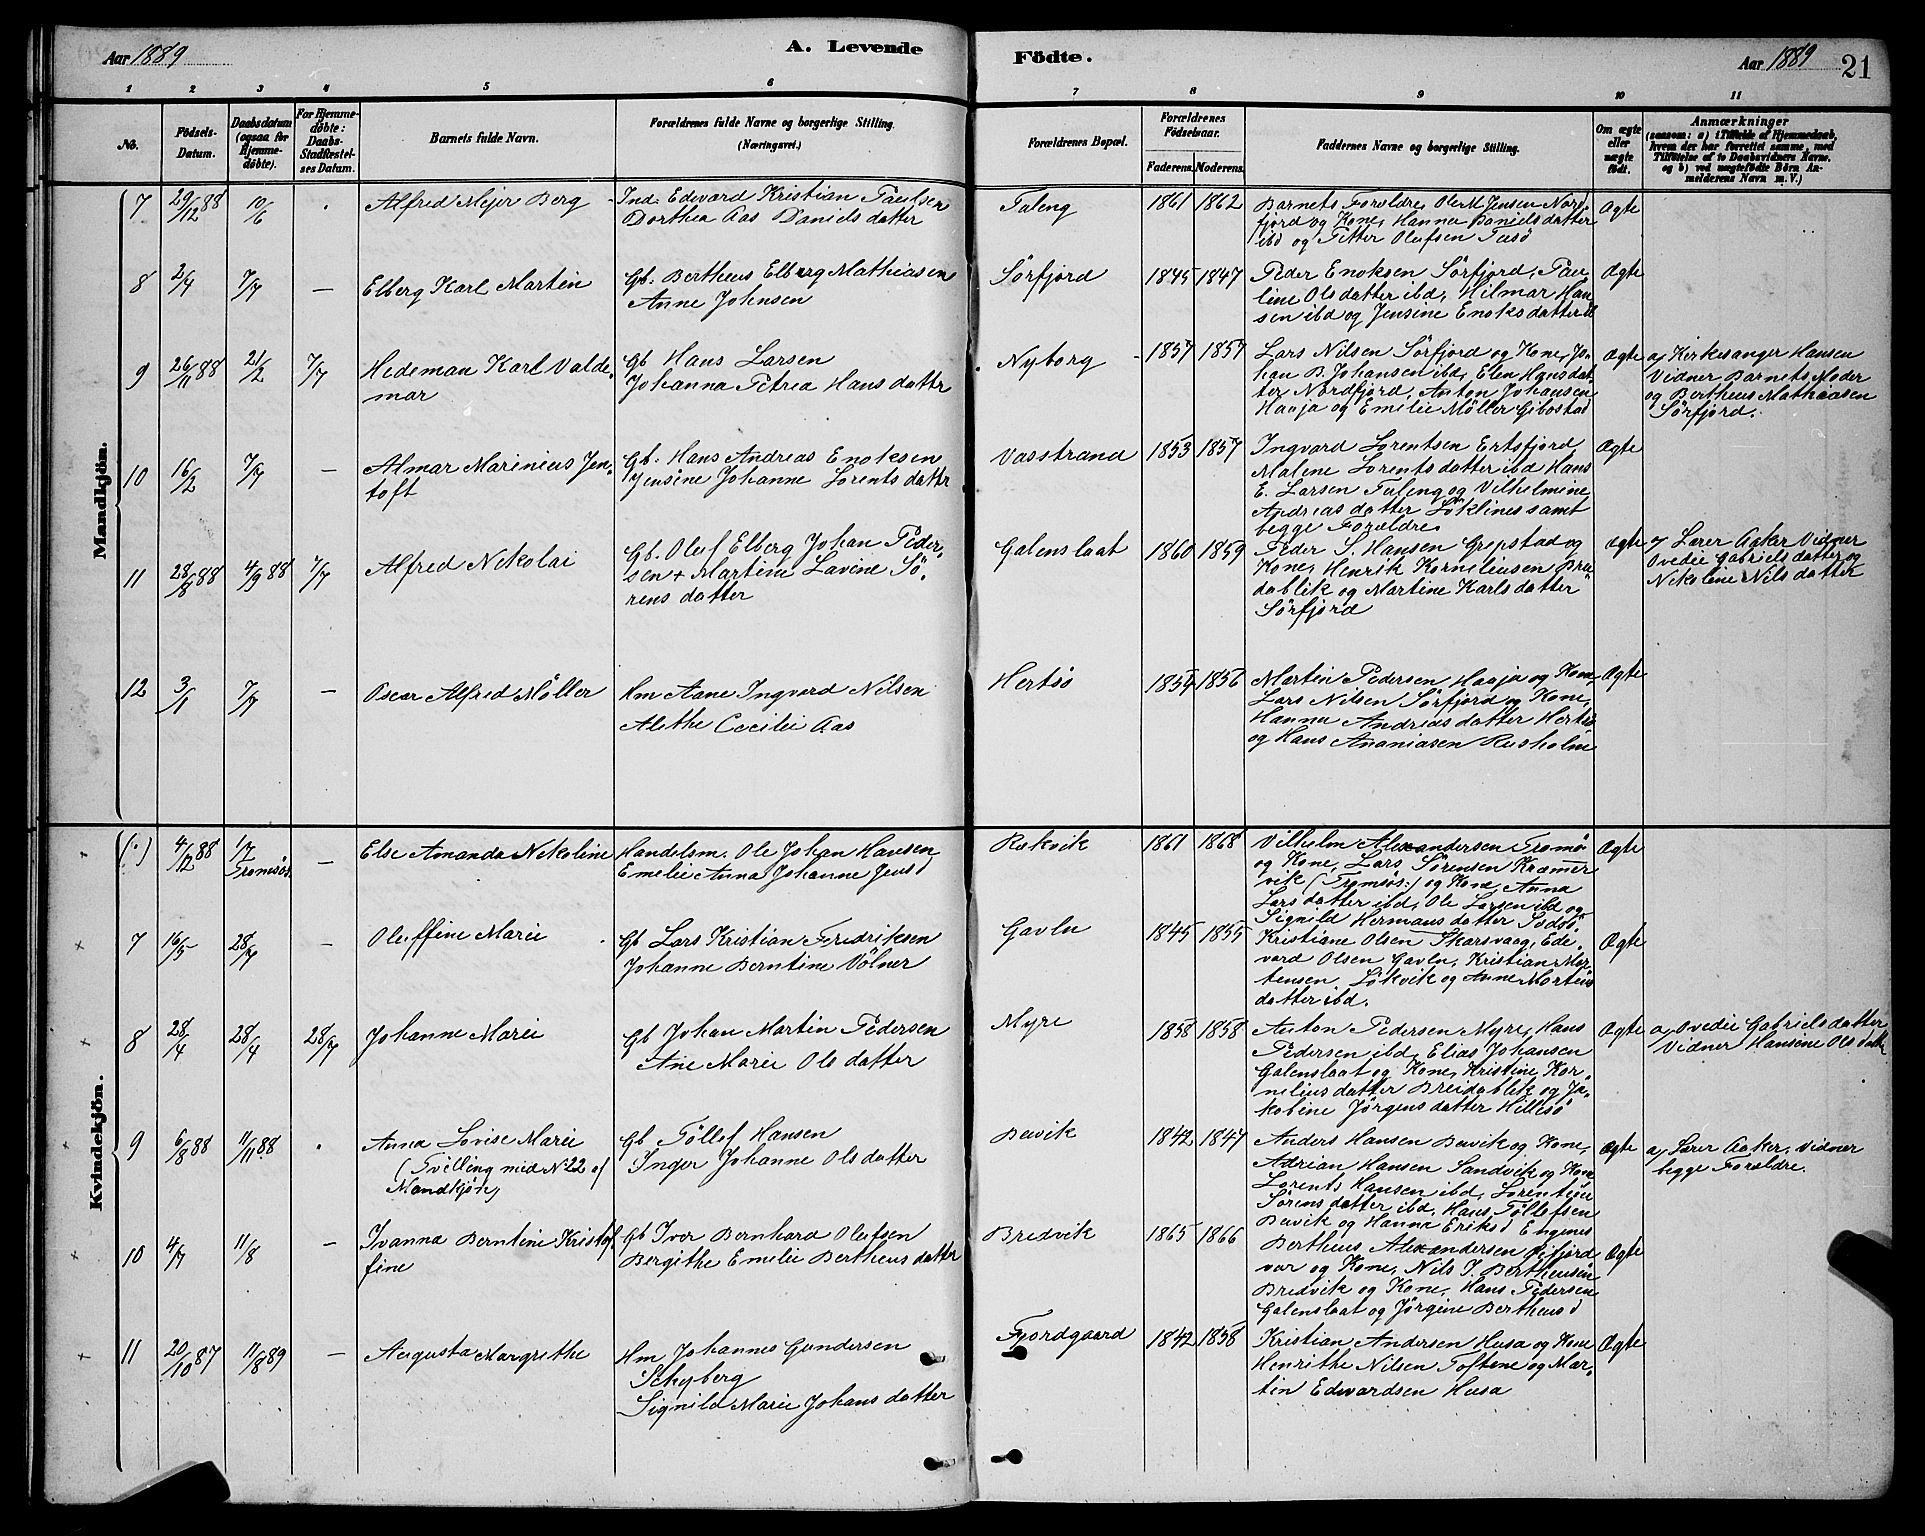 Aar 1889
A. Levende
Födte.
Aar 1889
21
1 2 3 4 5 6 7 8 9 10 11
No.
Födsels-
Datum.
Daabsdatum
(ogsaa for
Hjemme-
döbte).
For Hjemme-
döbte:
Daabs-
Stadfæstel-
ses Datum.
Barnets fulde Navn.
Forældrenes fulde Navne og borgerlige Stilling.
(Næringsvei.)
Forældrenes Bopæl.
Forældrenes
Födselsaar.
Faderens. Moderens.
Faddernes Navne og borgerlige Stilling.
Om ægte
eller
uægte
födt.
Anmærkninger
(saasom: a) i Tilfælde af Hjemmedaab,
hvem der har forrettet samme, med
Tilföielse af to Daabsvidners Navne,
og b) ved uægtefödte Börn An-
melderens Navn m. V.)
Mandkjön.
7 29/12 88 10/6 Alfred Mejer Berg
Ind. Edevard Kristian Paulsen
Dorthea Aas Daniels datter
Taleng 1861 1862
Barnets Forældre, Ole M Jensen Nord-
fjord og Kone, Hanna Daniels datter
ibd og Petter Olufsen Tusö
Ægte
8 2/4 7/7 — Elberg Karl Martin
Gb. Bertheus Elberg Mathiasen
Anne Johnsen
Sörfjord 1845 1847
Peder Enoksen Sörfjord, Pau-
line Olsdatter ibd, Hilmar Han-
sen ibd og Jensine Enoksdatter
Ægte
9 26/11 88 21/2 7/7 Hedeman Karl Valde-
mar
Gb Hans Larsen
Johanna Petrea Hans datter
Nyborg 1857 1857
Lars Nilsen Sörfjord og Kone, Jo-
han B. Johansen ibd, Elen Hansdat-
ter Nordfjord, Anton Johansen
Haaja og Emilie Möller Gibostad
Ægte
a, Kirkesanger Hansen
Vidner Barnets Moder
og Bertheus Mathiasen
Sörfjord.
10 16/2 7/7 — Almar Marinius Jen-
toft
Gb. Hans Andreas Enoksen
Jensine Johanne Lorents datter
Vasstrand 1853 1857
Ingvard Lorentsen Ertsfjord
Malene Lorents datter ibd Hans
E. Larsen Taleng og Vilhelmine
Andreas datter Löklines samt
begge Forældre
Ægte
11 28/8 88 4/9 88 7/7 Alfred Nikolai
Gb. Oluf Elberg Johan Peder-
sen + Martine Lavine Sö-
rens datter
Galenslaat 1860 1859
Peder S. Hansen Grepstad og
Kone, Henrik Korneliusen Brei-
dablik og Martine Karls datter
Sörfjord
Ægte
a, Lærer Aaker Vidner
Ovedie Gabriels datter og
Nikoline Nils datter
12 3/1 7/7 — Oscar Alfred Möller
Hm Aane Ingvard Nilsen
Alethe Cecilie Aas
Hertsö 1854 1856
Martin Pedersen Haaja og Kone
Lars Nilsen Sörfjord og Kone,
Hanna Andreas datter Hertsö
og Hans Ananiasen Rusholm
Ægte
Kvindekjön.
+ (:) 4/12 88 1/7
Tromsös. — Else Amanda Nikoline
Handelsm. Ole Johan Hansen
Emilie Anna Johanne Jensd
Rekvik 1861 1868
Vilhelm Alexandersen Tromsö
og Kone, Lars Sörensen Kræmer
vik (Tromsös:) og Kone, Anna
Lars datter ibd, Ole Larsen ibd og
Signild Hermans datter
Ægte
+ 7 16/5 28/7 — Oluffine Marie
Gb Lars Kristian Fredriksen
Johanne Berntine Völner
Gavln 1845 1855
Kristiane Olsen Skarsvaag, Ede-
vard Olsen Gavln, Kristian Mor-
tensen Lökvik og Anne Mortens
datter ibd.
Ægte
8 28/4 28/4 28/7 Johanne Marie
Gb Johan Martin Pedersen
Ane Marie Ols datter
Myre 1858 1858
Anton Pedersen Myre, Hans
Pedersen ibd, Elias Johansen
Galenslaat og Kone, Kristine Kor-
nelius datter Breidablik og Ja-
kobine Jörgens datter Hillesö
Ægte
a, Ovedie Gabriels datter
Vidner Hansine Ols datter
+ 9 6/8 88 11/11 88. Anna Lovise Marie
(Tvilling med N 22 af
Mandkjön)
Gb Töllef Hansen
Inger Johanne Ols datter
Bævik 1842 1847
Anders Hansen Bævik og Kone,
Adrian Hansen Sandvik og Kone
Lorents Hansen ibd, Lorentine
Sörens datter ibd, Hans Töllefsen
Bævik og Hanna Eriksd Engenes
Ægte
a, Lærer Aaker, Vidner
begge Forældre.
+ 10 4/7 11/8 — Ivanna Berntine Kristof-
fine
Gb Iver Bernhard Olufsen
Bergithe Emilie Bertheus datter
Bredvik 1865 1866
Bertheus Alexandersen Gifjord
var og Kone, Nils J. Bertheusen
Bredvik og Kone, Hans Pedersen
Galenslaat og Jörgine Bertheusd
Ægte
+ 11 20/10 87 11/8 89 — Augusta Margrethe
Hm Johannes Gundersen
Schyberg
Signild Marie Johans datter
Fjordgaard 1842 1858
Kristian Andersen Husa og Kone
Henrithe Nilsen Toftene og Mar-
tin Edvardsen Husa
Ægte